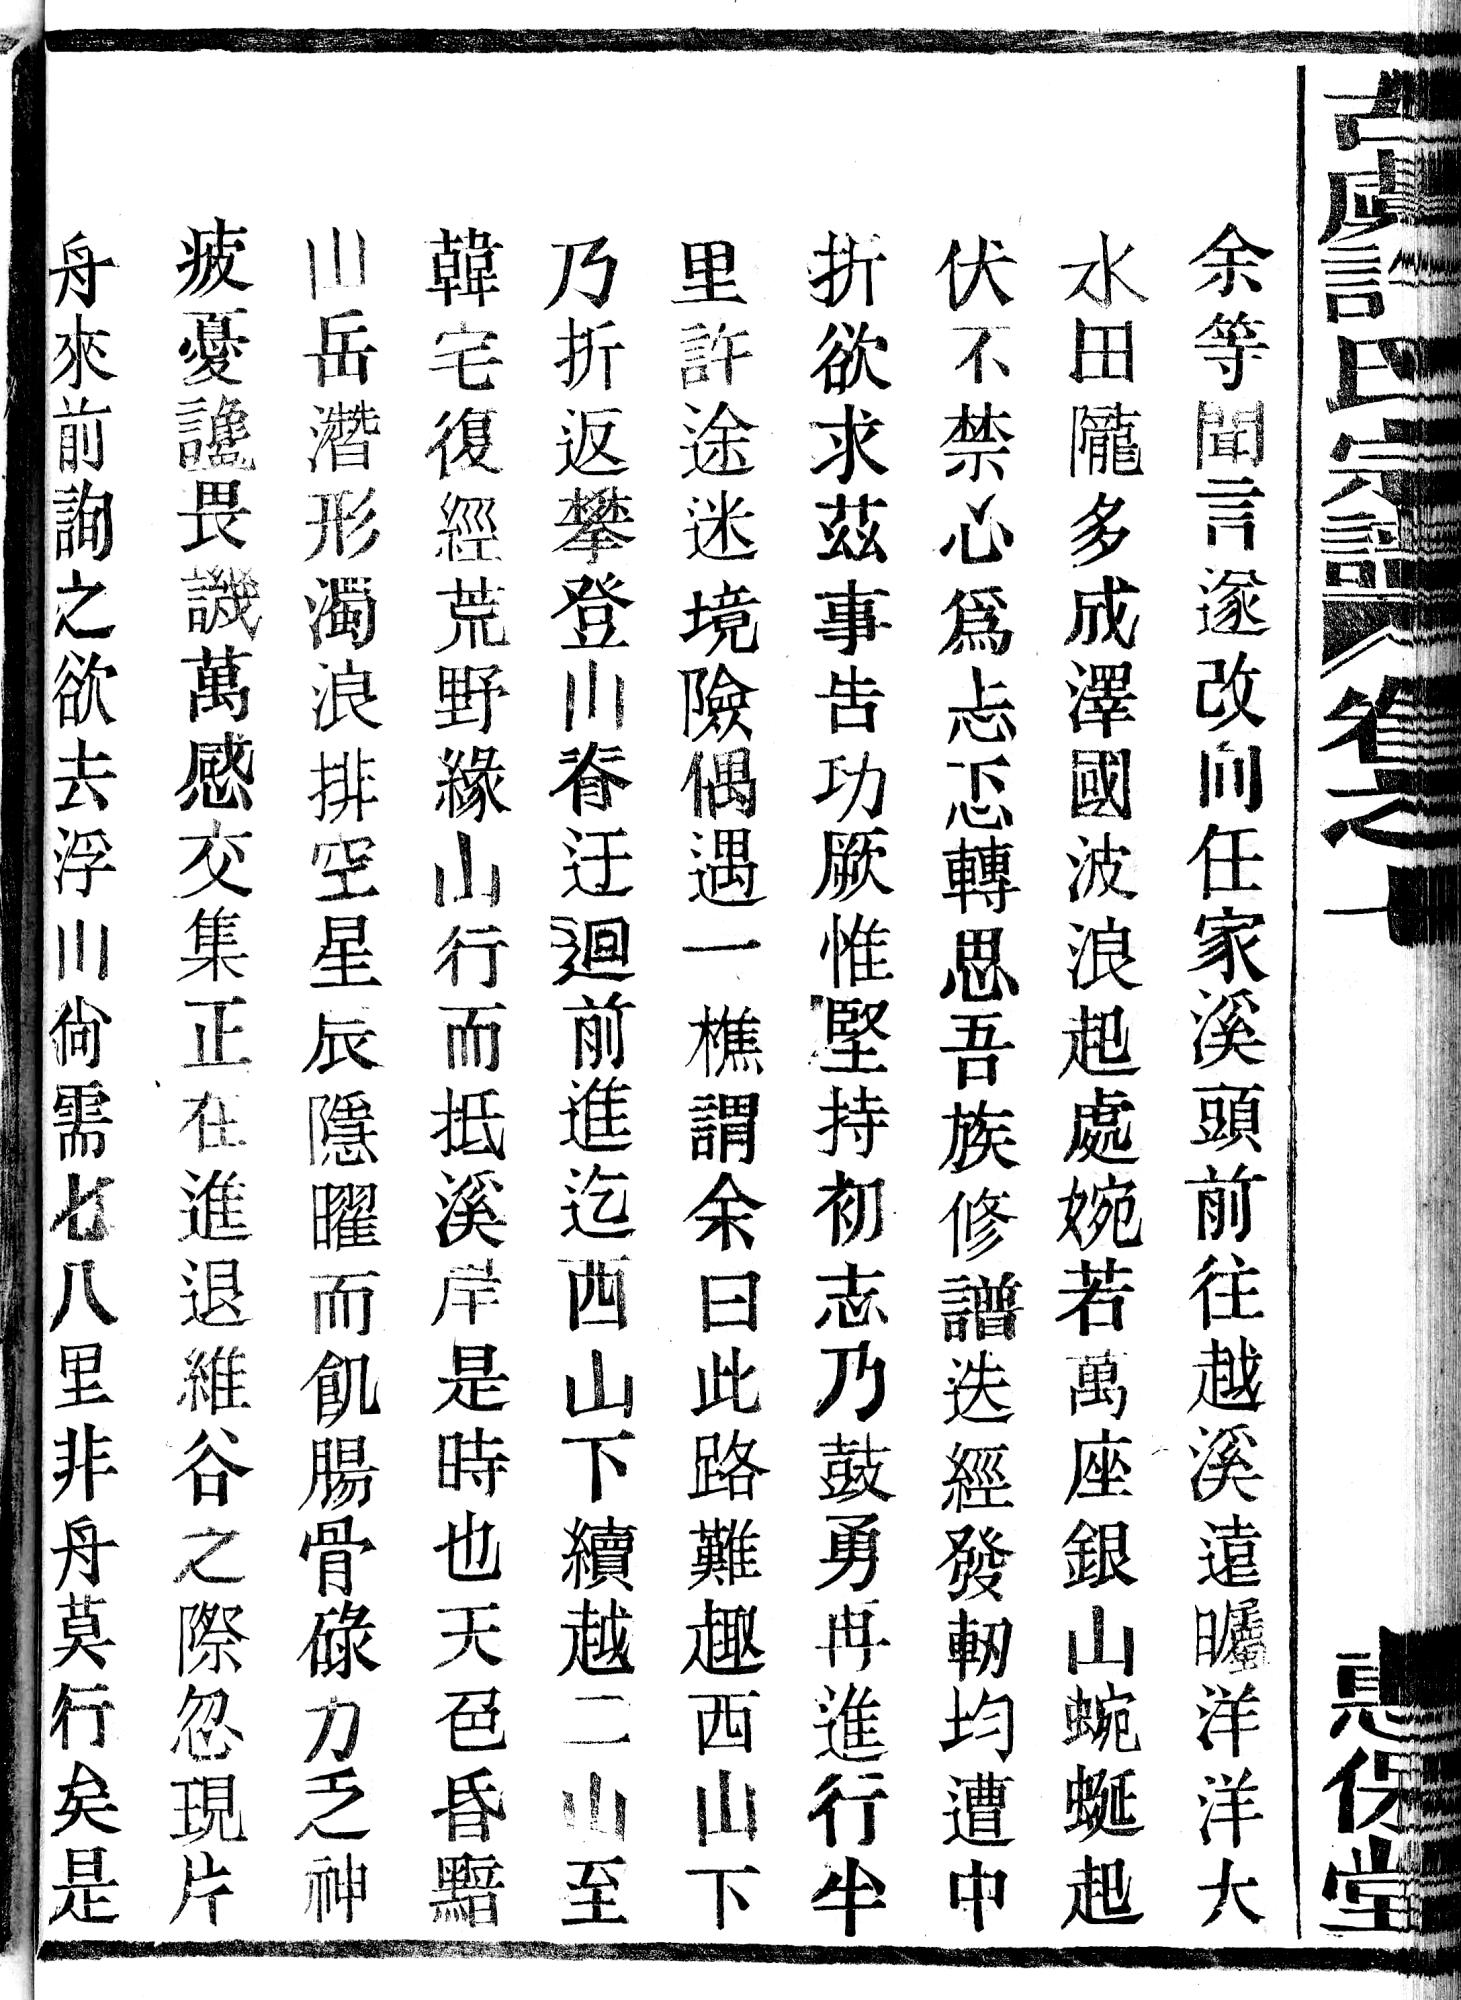 古虞許氏宗譜 卷之一 惠保堂
余等聞言遂改向任家溪頭前往越溪遠矚洋洋大
水田隴多成澤國波浪起處婉若萬座銀山蜿蜒起
伏不禁心為忐忑轉思吾族修譜迭經發軔均遭中
折欲求茲事告功厥惟堅持初志乃鼓勇再進行半
里許途迷境險偶遇一樵謂余曰此路難趣西山下
乃折返攀登山脊迂迴前進迄西山下續越二山至
韓宅復經荒野緣山行而抵溪岸是時也天色昏黯
山岳潛形濁浪排空星辰隱曜而飢腸骨碌力乏神
疲憂讒畏譏萬感交集正在進退維谷之際忽現片
舟來前詢之欲去浮山尙需七八里非舟莫行矣是